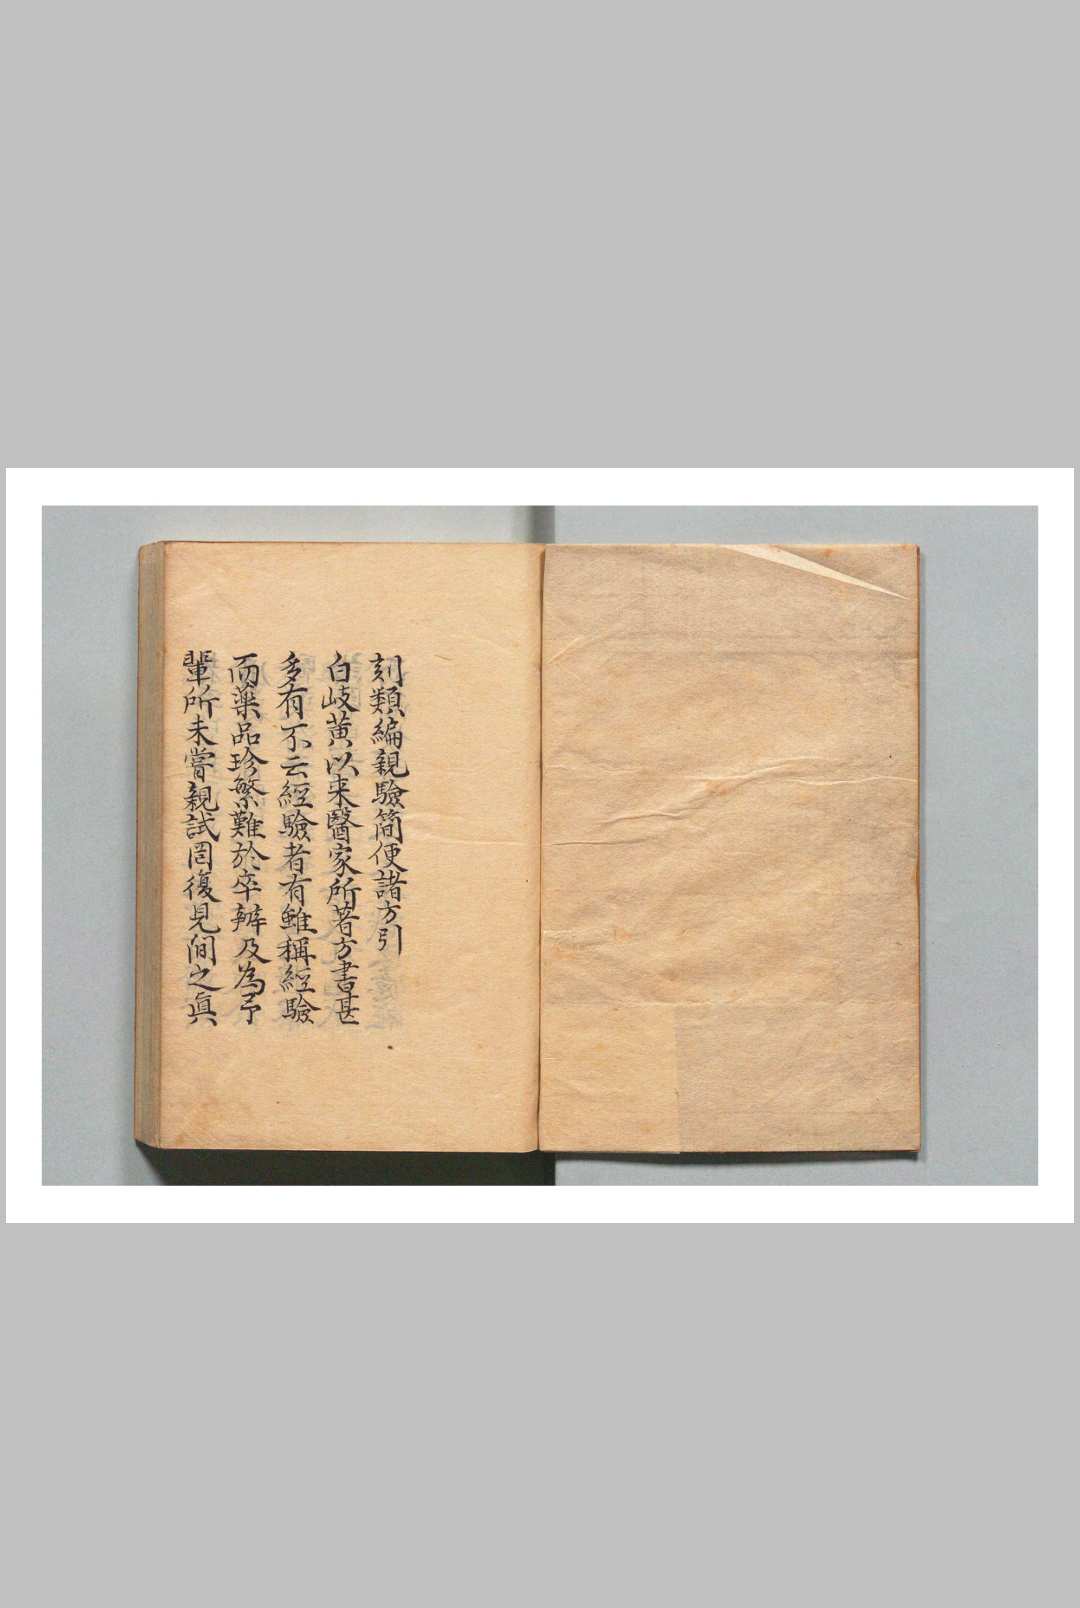 刻類編親驗簡便諸方引
白岐黄以来醫家所著方書甚
多有不云經驗者有雖稱經驗
而藥品珍繁難於卒辨及為予
輩所未嘗親試罔復見間之眞